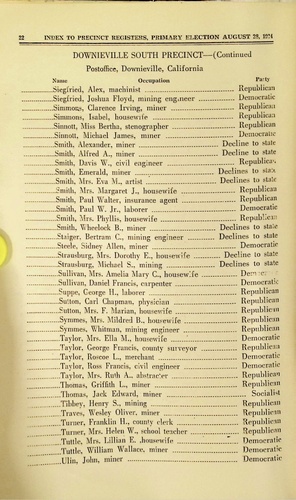 22 INDEX TO PRECINCT REGISTERS, PRIMARY ELECTION AUGUST
DOWNIEVILLE SOUTH PRECINCT—(Continued
Postoffice, Downieville, California
Name Occupation Party
Siegfried, Alex, machinist Republican
Siegfried, Joshua Floyd, mining engineer Democratic
Simmons, Clarence Irving, miner Republican
Simmons, Isabel, housewife Republican
Sinnott, Miss Bertha, stenographer Republican
Sinnott, Michael James, miner Democratic
Smith, Alexander, miner Decline to state
Smith, Alfred A., miner Decline to state
Smith, Davis W., civil engineer Republican
Smith, Emerald, miner Declines to state
Smith, Mrs. Eva M., artist Declines to state
Smith, Mrs. Margaret J., housewife Republican
Smith, Paul Walter, insurance agent Republican
Smith, Paul W. Jr., laborer Democratic
Smith, Mrs. Phyllis, housewife Republican
Smith, Wheelock B., miner Declines to state
Staiger, Bertram C., mining engineer Declines to state
Steele, Sidney Allen, miner Democratic
Strausburg, Mrs. Dorothy E., housewife Decline to state
Strausburg, Michael S., mining Declines to state
Sullivan, Mrs. Amelia Mary C., housewife
Sullivan, Daniel Francis, carpenter Democratic
Suppe, George H., laborer Republican
Sutton, Carl Chapman, physician Republican
Sutton, Mrs. F. Marian, housewife Republican
Symmes, Mrs. Mildred B., housewife Republican
Symmes, Whitman, mining engineer Republican
Taylor, Mrs. Ella M., housewife Democratic
Taylor, George Francis, county surveyor Republican
Taylor, Roscoe L., merchant Democratic
Taylor, Ross Francis, civil engineer Democratic
Taylor, Mrs. Ruth A., abstracter Republican
Thomas, Griffith L., miner Republican
Thomas, Jack Edward, miner Socialist
Tibbey, Henry S., mining Republican
Traves, Wesley Oliver, miner Republican
Turner, Franklin H., county clerk Republican
Turner, Mrs. Helen W., school teacher Republican
Tuttle, Mrs. Lillian E. housewife Democratic
Tuttle, William Wallace, miner Democratic
Ulin, John, miner Democratic